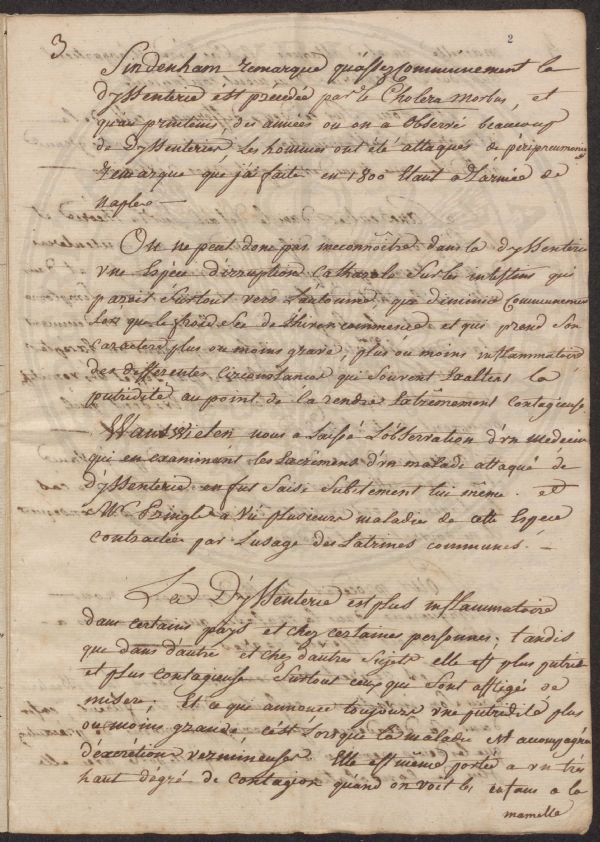 3.
2
Sindenham remarque qu'assez Communnement la
dyssenterie est précédée par le Cholera morbus, et
qu'au printems des années ou on a Observé beaucoup
de dyssenteries Les hommes ont été attaqués de péripneumonie
remarque que j'ai faite en 1800 Etant a L'armée de
naples —
On ne peut donc pas meconnoître dans la dyssenterie
une Espéce d'irruption Catharale sur les intestins qui
paroit surtout vers L'automne, qui diminue Communement
lors que le froid sec de L'hiver commence et qui prend son
caractere plus ou moins grave, plus ou moins inflammatoire
des differentes circonstances qui souvent Exaltent la
putridité au point de la rendre Extrêmement contagieuse.
Wanswieten nous a laissé L'observation d'un medecin
qui en examinant les Excrémens d'un malade attaqué de
dyssenterie en fut saisi subitement lui même. et
Mr. Pringle a vu plusieurs maladies de cette Espece
contractées par L'usage des Latrines communes. —
La Dyssenterie est plus inflammatoire
dans certains pays et chez certaines personnes; tandis
que dans d'autres et chez d'autres sujets elle est plus putride
et plus contagieuse surtout ceux qui sont affligés de
misère. Et ce qui annonce toujours une putridité plus
ou moins grande c'est lorsque la maladie est acompagnée
d'excrétions vermineuses. Elle est meme portée a un très
haut dégré de contagion quand on voit les enfans a la
mamelle